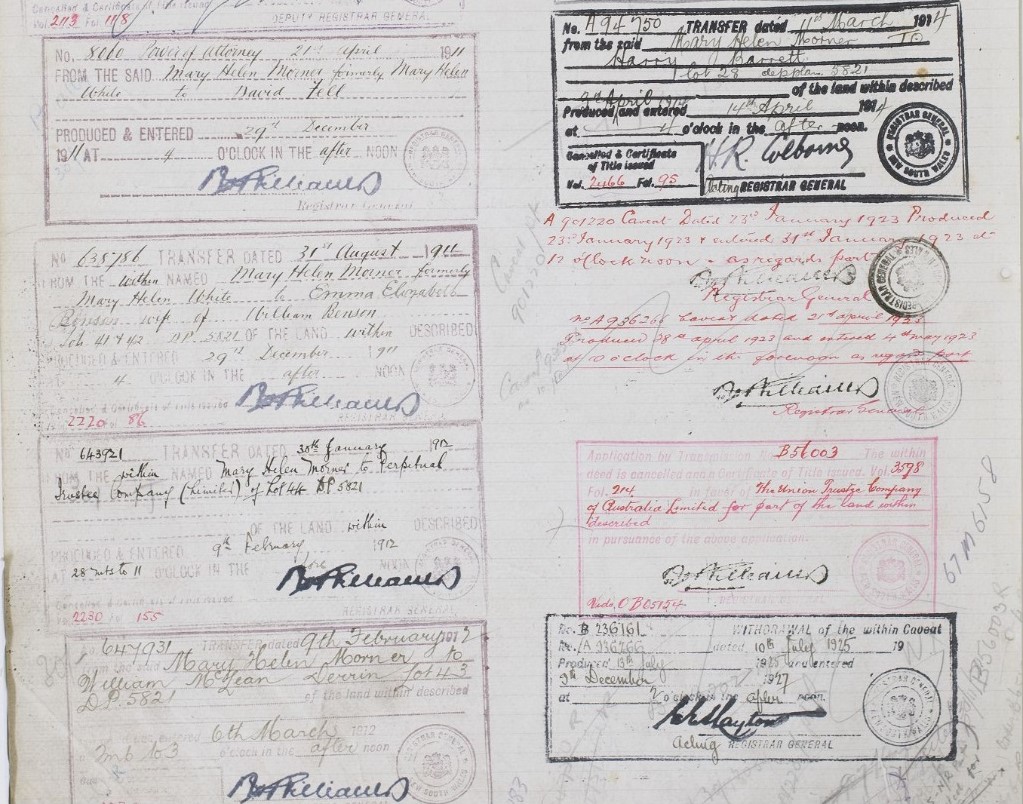 Cancelled & Certificate of Title issued
Vol. 2113 Fol. 118
DEPUTY REGISTRAR GENERAL
No. 8060 Power of Attorney 21st April 1911
FROM THE SAID Mary Helen Morner formerly Mary Helen
White to David Fell
PRODUCED & ENTERED 29th December
1911 AT 4 O'CLOCK IN THE after NOON
Registrar General
No 635786 TRANSFER DATED 31st August 1911
FROM THE within NAMED Mary Helen Morner formerly
Mary Helen White to Emma Elizabeth
Benson wife of William Benson
Lots 41 & 42 DP 5821 OF THE LAND within DESCRIBED
PRODUCED & ENTERED 29th December 1911
AT 4 O'CLOCK IN THE after NOON
Cancelled & Certificate of title issued
2220 Fol 86
REGISTRAR GENERAL
No 643921 TRANSFER DATED 30th January 1912
FROM THE within NAMED Mary Helen Morner to Perpetual
Trustee Company (Limited) of Lot 44 DP 5821
OF THE LAND within DESCRIBED
PRODUCED & ENTERED 9th February 1912
AT 28 mts to 11 O'CLOCK IN THE fore NOON
Cancelled & Certificate of title issued
2230 155
REGISTRAR GENERAL
No 647931 TRANSFER dated 9th February 1912
from the said Mary Helen Morner to
William McLean Derrin lot 43
DP 5821 of the land within described
entered 6th March 1912
3 o'clock in the after noon
No. A94750 TRANSFER dated 11th March 1914
from the said Mary Helen Morner TO
Harry Barrett
lot 28 dep plan 5821
of the land within described
9th April 1914
Produced and entered 14th April 1914
at 4 o'clock in the after noon.
Cancelled & Certificate
of Title issued
Vol. 2466 Fol. 95
H.R. Colborne
Acting REGISTRAR GENERAL
REGISTRAR GENERAL NEW SOUTH WALES
A 901220 Caveat Dated 23rd January 1923 Produced
23rd January 1923 & entered 31st January 1923 at
12 o'clock noon - as regards part
Registrar General
No A936266 Caveat dated 21st April 1923
Produced 28th April 1923 and entered 4th May 1923
at 10 o'clock in the forenoon as regards part
Registrar General
Application by Transmission No. B56003 The within
deed is cancelled and a Certificate of Title issued. Vol. 3578
Fol. 214 in favor of The Union Trustee Company
of Australia Limited for part of the land within
described
in pursuance of the above application.
Vide O B05154
No. B 236161 WITHDRAWAL of the within Caveat
No. A 936266 dated 10th July 1925 19
Produced 13th July 1925 and entered
9th December 1927
at 2 o'clock in the after noon.
Acting REGISTRAR GENERAL
67 M 6158
B56003R